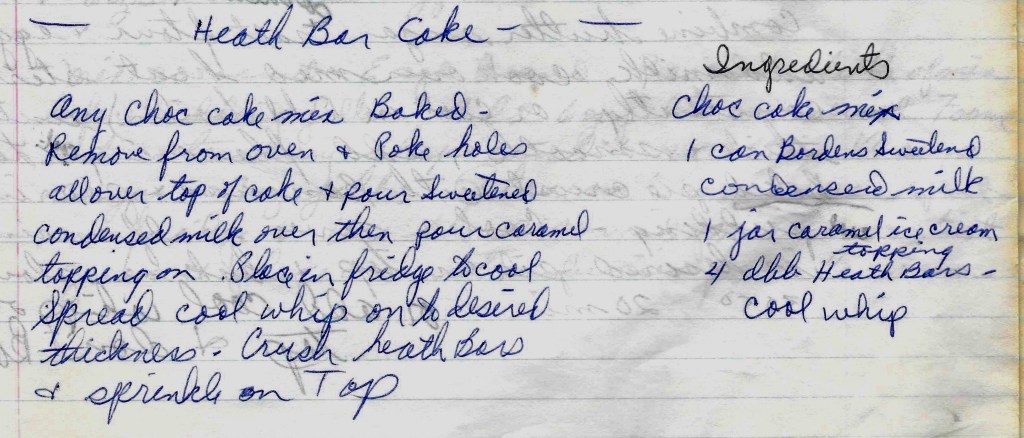 Heath Bar Cake -
any Choc cake mix Baked -
Remove from oven & Poke holes
all over top of cake & pour Sweetened
condensed milk over then pour caramel
topping on. Place in fridge to cool
Spread cool whip on to desired
thickness - Crush heath Bars
& sprinkle on Top
Ingredients
Choc cake mix
1 can Bordens Sweetend
condensed milk
1 jar caramel ice cream
topping
4 dbb Heath Bars -
cool whip